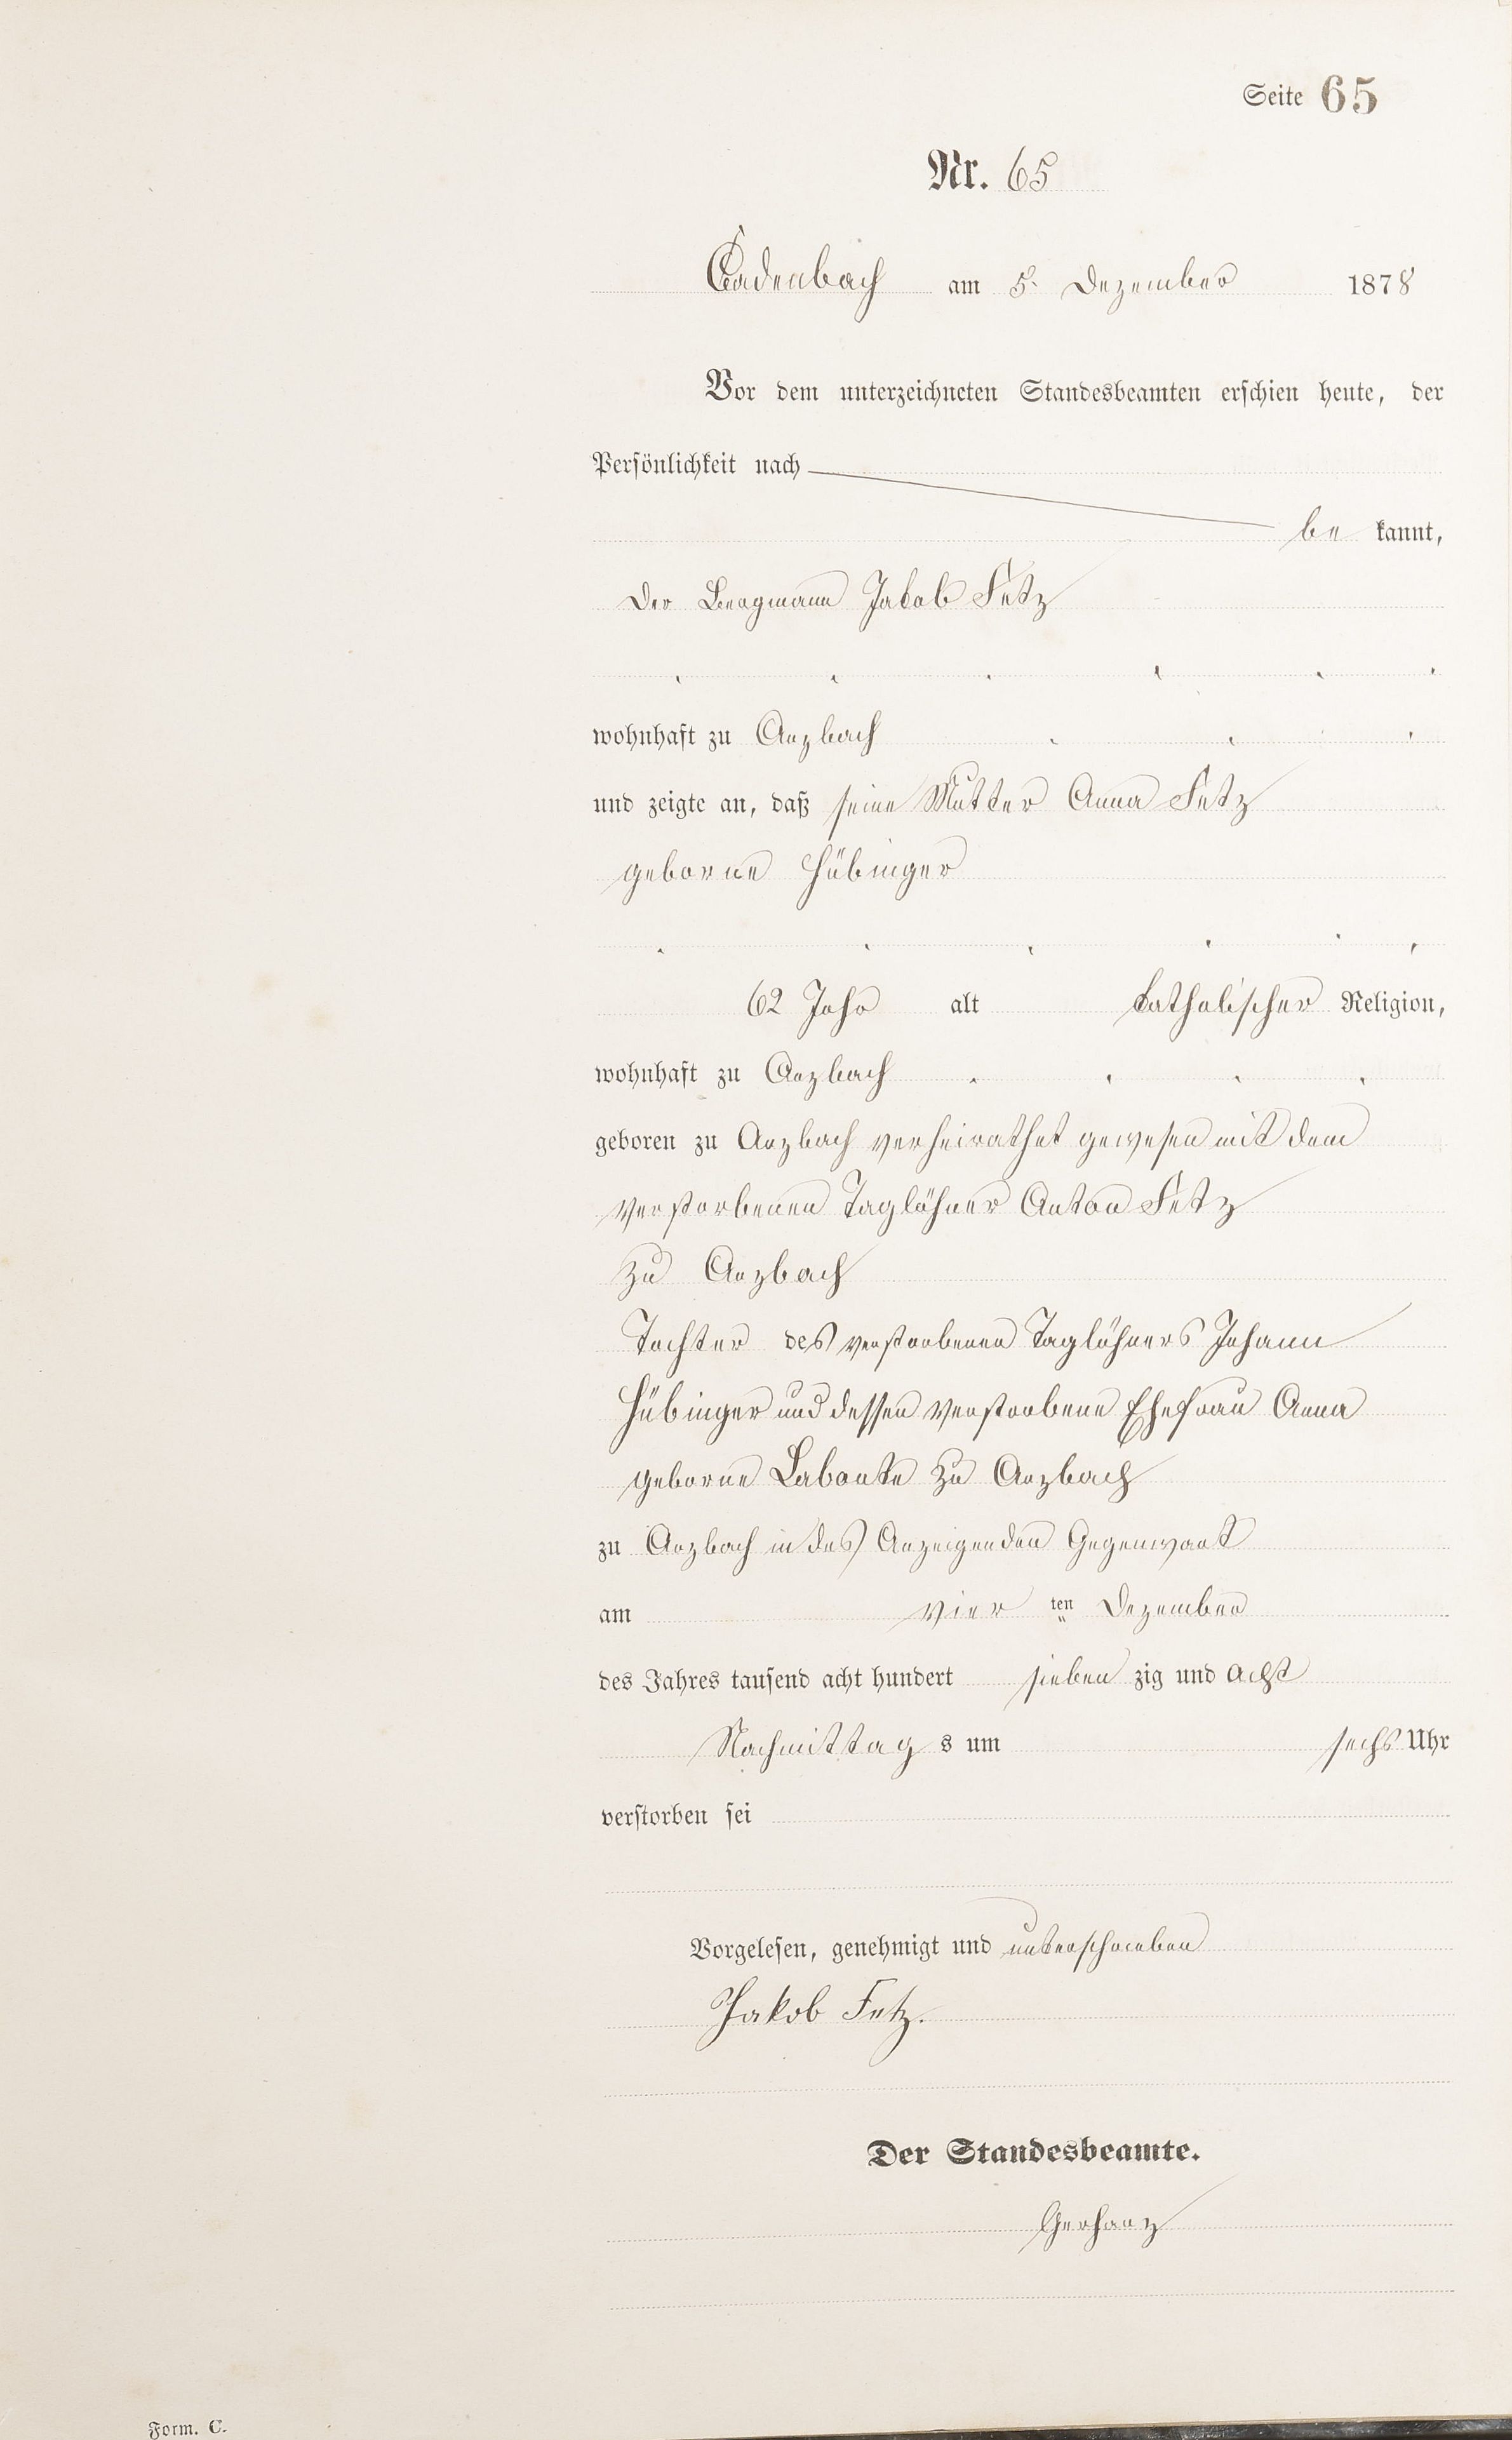 Seite 65
Nr. 65
Cadenbach am 5. Dezember 1878
Vor dem unterzeichneten Standesbeamten erschien heute, der
Persönlichkeit nach
be kannt,
der Bergmann Jakob Fetz
wohnhaft zu Arzbach
und zeigte an, daß seine Mutter Anna Fetz
geborne Hübinger
62 Jahr alt katholischer Religion,
wohnhaft zu Arzbach
geboren zu Arzbach verheirathet gewesen mit dem
verstorbenen Taglöhner Anton Fetz
zu Arzbach
Tochter des verstorbenen Taglöhners Johann
Hübinger und dessen verstorbene Ehefrau Anna
geborne Labonte zu Arzbach
zu Arzbach in des Anzeigenden Gegenwart
am vier ten Dezember
des Jahres tausend acht hundert sieben zig und acht
Nachmittag s um sechs Uhr
verstorben sei
Vorgelesen, genehmigt und unterschrieben
Jakob Fetz.
Der Standesbeamte.
Gerharz
Form. C.